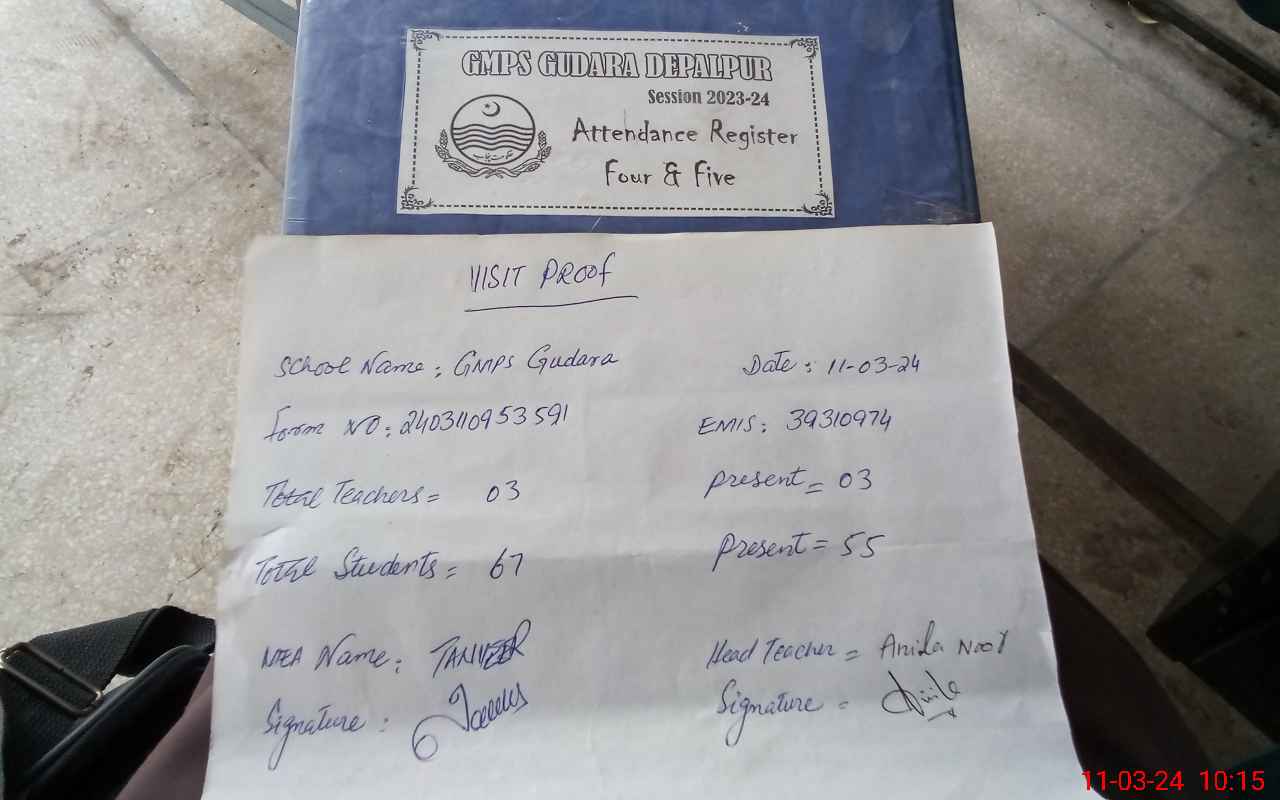 GMPS GUDARA DEPALPUR
Session 2023-24
Attendance Register
Four & Five
حکومت پنجاب
VISIT PROOF
School Name : GMPS Gudara
Date : 11-03-24
Form NO : 2403110953591
EMIS : 39310974
Total Teachers = 03
Present = 03
Total Students = 67
Present = 55
MEA Name : TANVEER
Head Teacher = Anila Noor
Signature :
Signature =
11-03-24 10:15